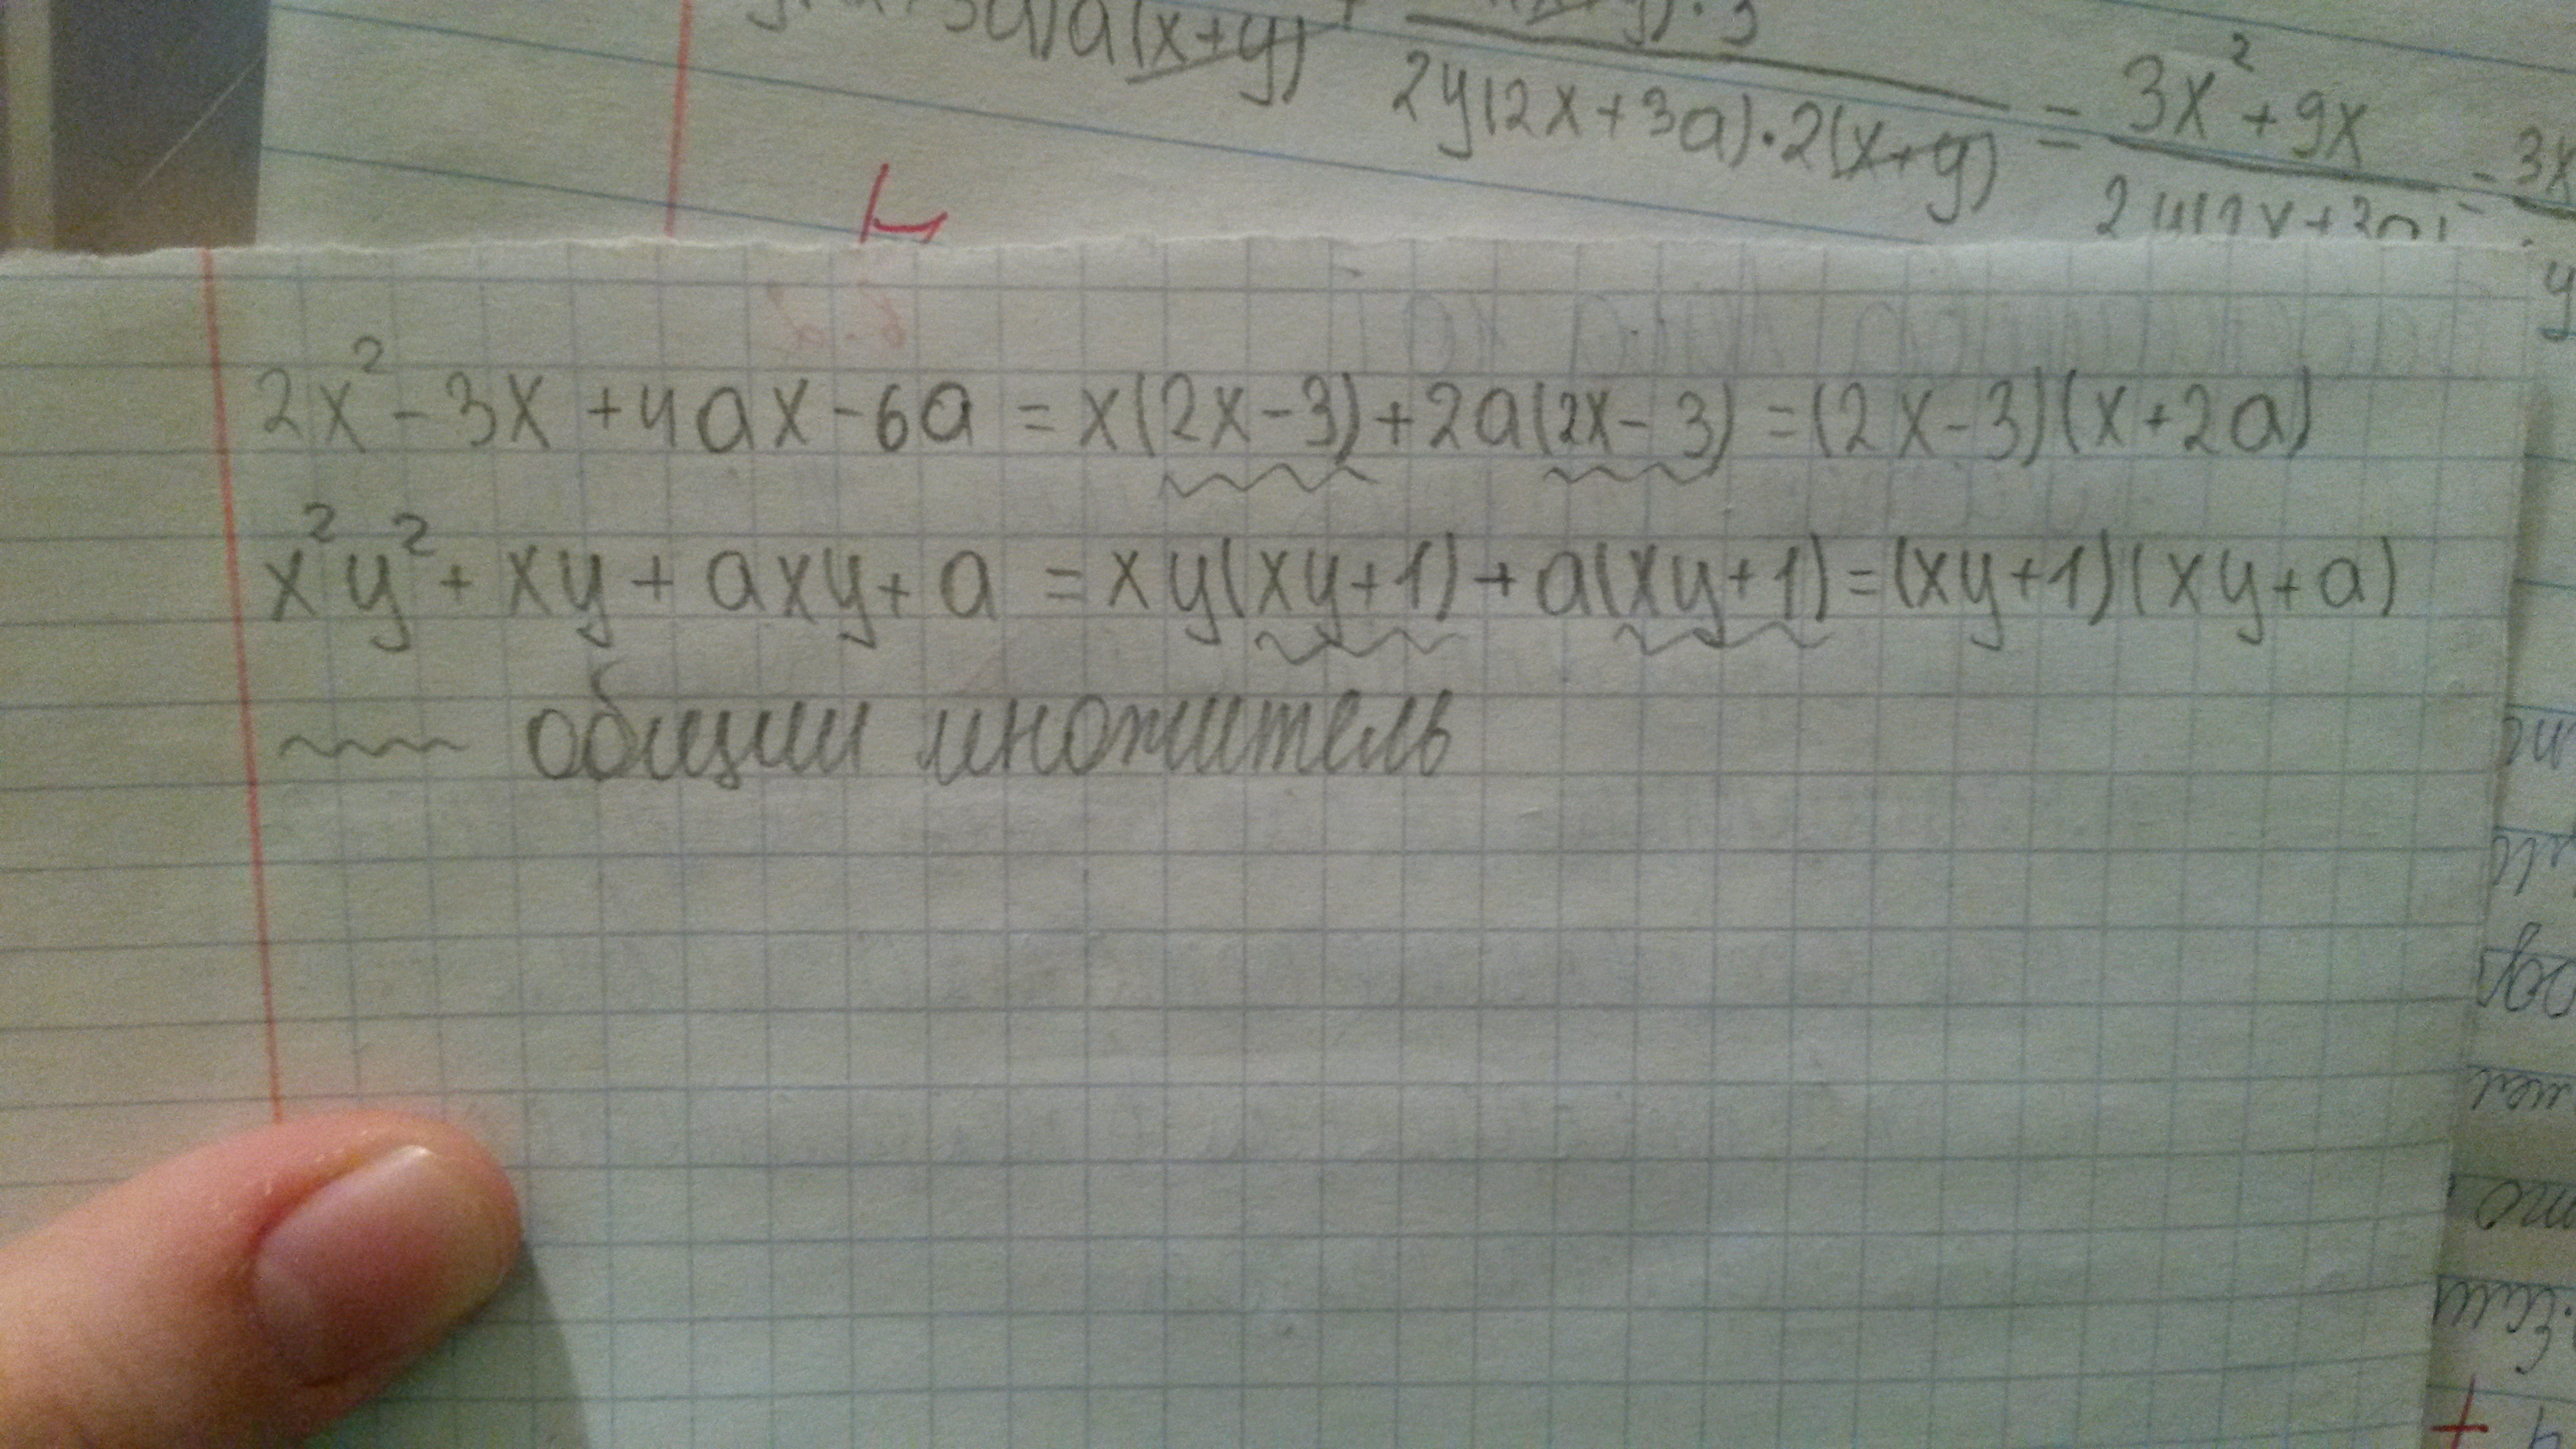 a(x+y)
2y(2x+3a)·2(x+y) = 3x²+9x
2x² - 3x + 4ax - 6a = x(2x-3) + 2a(2x-3) = (2x-3)(x+2a)
x²y² + xy + axy + a = xy(xy+1) + a(xy+1) = (xy+1)(xy+a)
~~~ общий множитель